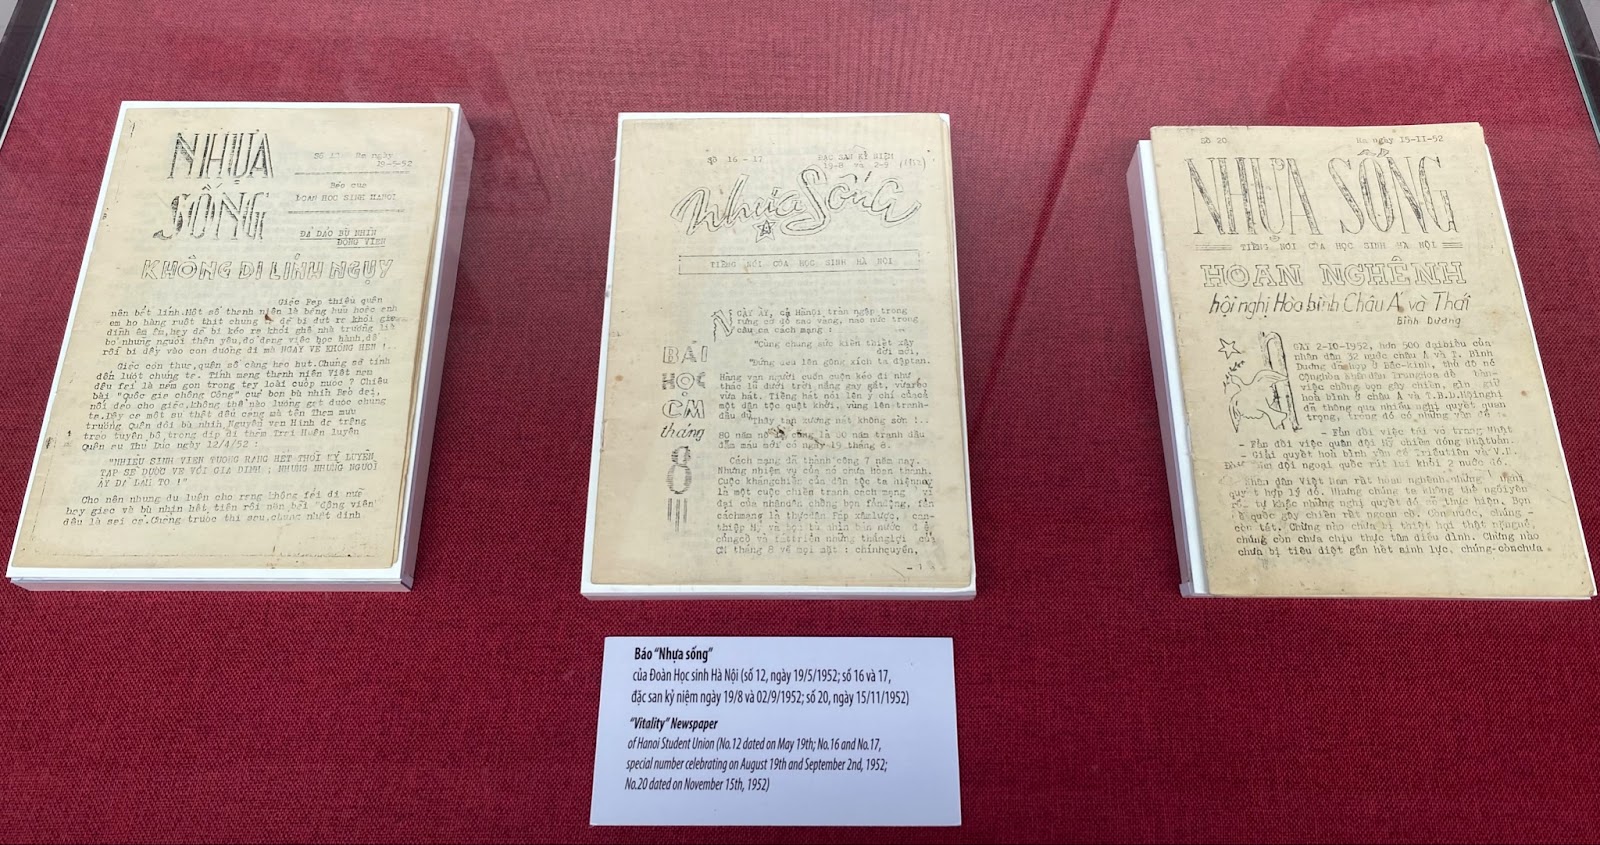 NHỰA
SỐNG
Số 12 Hn ngày
19-5-52
Báo của
ĐOAN HOC SINH HANOI
ĐẢ ĐẢO BÙ NHÌN
ĐỘNG VIÊN
KHÔNG ĐI LÍNH NGỤY
Giặc Fap thiếu quân
nên bắt lính. Một số thanh niên là bạng hưu hoặc anh
em họ hàng ruột thịt chúng ta để bị đưt ra khỏi gia
đình êm ấm, hay để bị kéo ra khỏi ghế nhà trường lià
bỏ những người thân yêu, dở dang việc học hành, để
rồi bị đẩy vào con đường đi mà NGAY VE KHONG HEN !..
Giặc còn thua, quân số càng hao hụt. Chúng sẽ tính
đến lượt chúng ta. Tính mạng thanh niên Việt nam
đều fải là nắm gọn trong tay loài cướp nước ? Chiêu
bài "Quốc gia chống Cộng" của bọn bù nhìn Bảo đại,
nối dáo cho giặc, không thể nào lường gạt được chúng
ta. Đây ca một sự thật đầu càng mà tên Tham mưu
trưởng Quân đội bù nhìn Nguyễn văn Hinh đã trắng
trợn tuyên bố, trong dịp đi thăm Trại Huấn luyện
Quân sự Thủ Đức ngày 12/4/52 :
"NHIEU SINH VIEN TUONG RANG HET THOI KY LUYEN
TAP SE DUOC VE VOI GIA DINH ; NHUNG NHUNG NGUOI
AY DA LAM TO !"
Cho nên nhưng dư luận cho rằng không fải đi nữa
hay giặc và bù nhìn hết tiền rồi nên bãi "động viên"
đều là sai cả. Chúng trước thì sau, chúng nhất định
Số 16 - 17
ĐẶC SAN KỶ NIỆM
19-8 và 2-9 (1952)
Nhựa Sống
TIẾNG NÓI CỦA HỌC SINH HÀ NỘI
BÀI
HỌC
CM
tháng
8
NGÀY ẤY, cả Hànội tràn ngập trong
rừng cờ đỏ sao vàng, náo nức trong
câu ca cách mạng :
"Cùng chung sức kiến thiết xây
đời mới,
"Đừng đeo lên gông xích ta đạptan.
Hàng vạn người cuồn cuộn kéo đi như
thác lũ dưới trời nắng gay gắt, vừa reo
vừa hát. Tiếng hát nói lên ý chí củacả
một dân tộc quật khởi, vùng lên tranh-
đấu dù
"Thây tan xương nát không sờn !..
80 năm nô lệ cũng là 80 năm tranh đấu
đẫm máu mới có ngày 19 tháng 8.
Cách mạng đã thành công 7 năm nay.
Nhưng nhiệm vụ của nó chưa hoàn thành.
Cuộc khángchiến của dân tộc ta hiệnnay
là một cuộc chiến tranh cách mạng vĩ
đại của nhândân chống bọn fảnđộng, fản
cáchmạng là thựcdân Fáp xâmlược, can-
thiệp Mỹ và bọn bù nhìn bán nước để
củngcố và fáttriển những thắnglợi của
CM tháng 8 về mọi mặt : chínhquyền,
- 1
Số 20
Hn ngày 15-11-52
NHỰA SỐNG
TIẾNG NÓI CỦA HỌC SINH HÀ NỘI
HOAN NGHÊNH
hội nghị Hòa bình Châu Á và Thái
Bình Dương
NGÀY 2-10-1952, hơn 500 đạibiểu của
nhân dân 32 nước châu Á và T. Bình
Dương đã họp ở Bắc-kinh, thủ đô nước
Cộnghòa nhândân Trunghoa để
việc chống bọn gây chiến, gìn giữ
hoà bình ở châu Á và T.B.D. Hộinghị
đã thông qua nhiều nghị quyết quan
trọng, trong đó có những vấn đề :
- Fản đối việc tái võ trang Nhật
- Fản đối việc quân đội Mỹ chiếm đóng Nhậtbản.
- Giải quyết hoà bình vấn đề Triềutiên và V.N.
đội ngoại quốc rút lui khỏi 2 nước đó.
Nhân dân Việt Nam rất hoan nghênh những nghị
quyết hợp lý đó. Nhưng chúng ta không thể ngồi yên
tự khắc những nghị quyết đó thực hiện. Bọn
đế quốc gây chiến rất ngoan cố. Còn nước, chúng -
còn tát. Chừng nào chưa bị thiệt hại thật nặng nề,
chúng còn chưa chịu thực tâm điều đình. Chừng nào
chưa bị tiêu diệt gần hết sinh lực, chúng-cònchưa
Báo "Nhựa sống"
của Đoàn Học sinh Hà Nội (số 12, ngày 19/5/1952; số 16 và 17,
đặc san kỷ niệm ngày 19/8 và 02/9/1952; số 20, ngày 15/11/1952)
"Vitality" Newspaper
of Hanoi Student Union (No.12 dated on May 19th; No.16 and No.17,
special number celebrating on August 19th and September 2nd, 1952;
No.20 dated on November 15th, 1952)